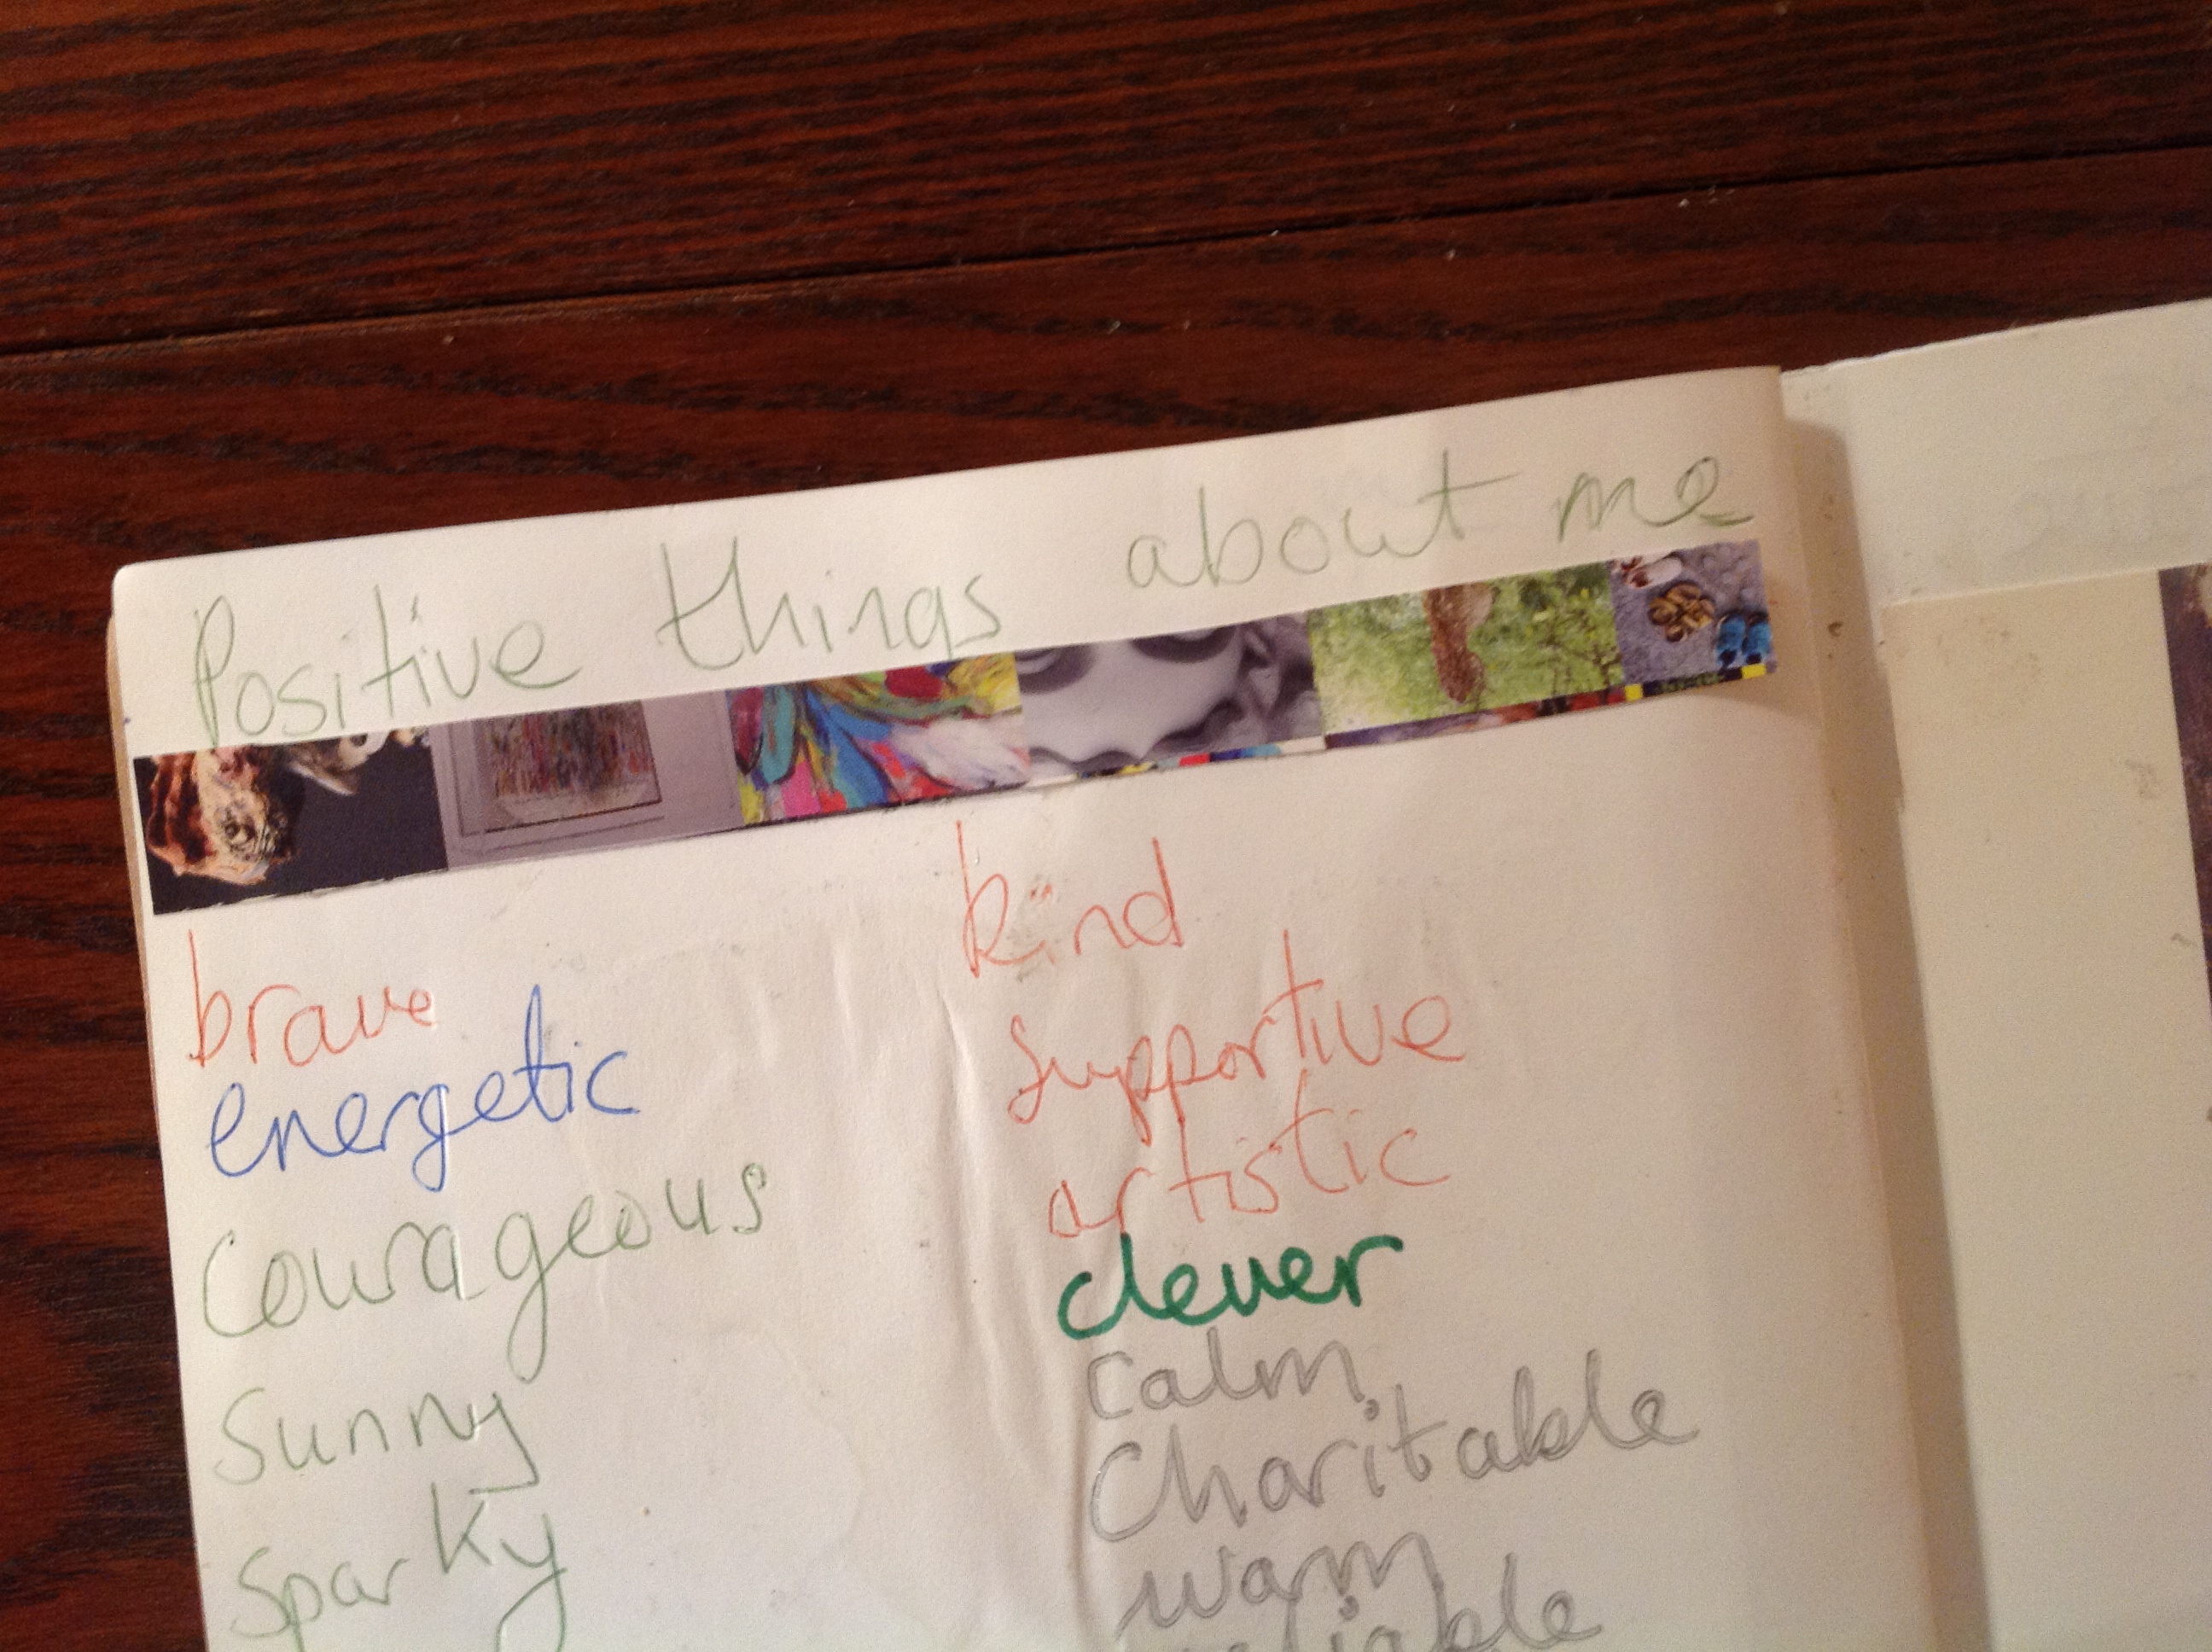 Positive things about me
brave
energetic
Courageous
Sunny
Sparky
kind
supportive
artistic
clever
calm
Charitable
warm